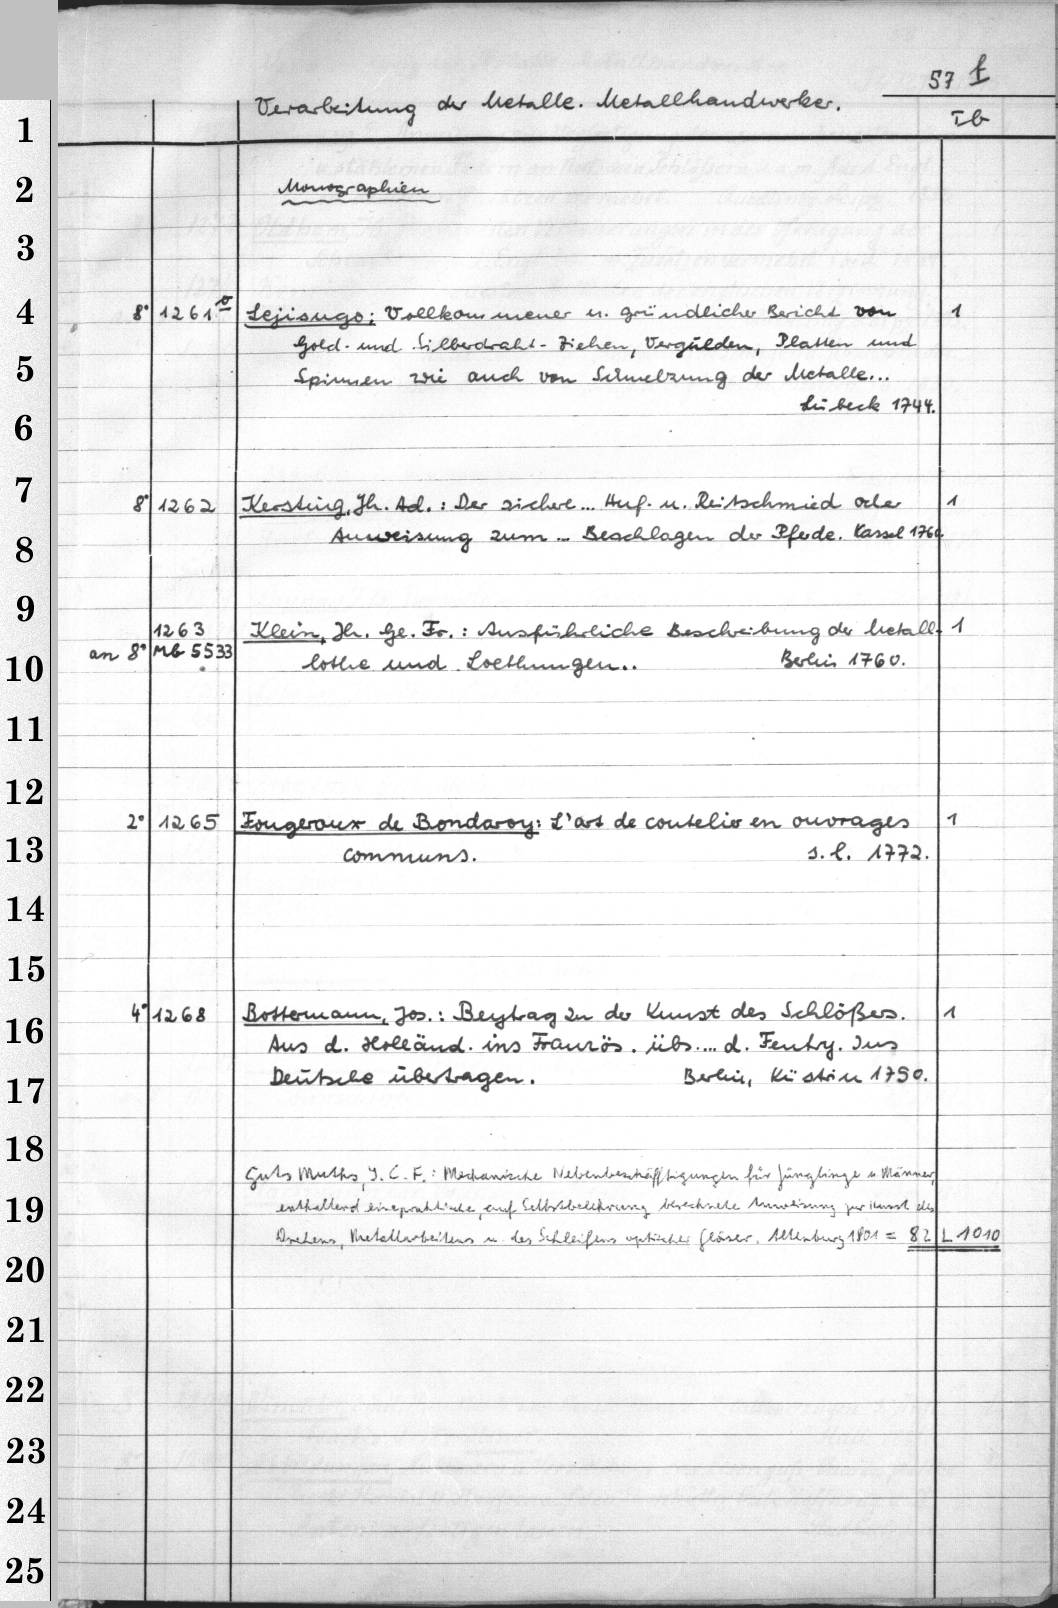 57 f
Verarbeitung der Metalle. Metallhandwerker.
Ib
1
2
Monographien
3
4
8° 1261 Lejisugo: Vollkommener u. gründlicher Bericht von 1
Gold- und Silberdraht-Ziehen, Vergülden, Platten und
5
Spinnen wie auch von Schmelzung der Metalle...
Lübeck 1744.
6
7
8° 1262 Kersting, Jh. Ad.: Der sichere... Huf- u. Reitschmied oder 1
Anweisung zum... Beschlagen der Pferde. Kassel 1760.
8
9
1263 Klein, Jh. Ge. Fr.: Ausführliche Beschreibung der Metall- 1
an 8° Mb 5533 lothe und Loethungen.. Berlin 1760.
10
11
12
2° 1265 Fougeroux de Bondaroy: L'art de coutelier en ouvrages 1
communs. s.l. 1772.
13
14
15
4° 1268 Bottermann, Jos.: Beytrag zu der Kunst des Schlößers. 1
16
Aus d. Holländ. ins Französ. übs.... d. Feutry. Ins
Deutsche übertragen. Berlin, Küstrin 1790.
17
18
Guts Muths, J. C. F.: Mechanische Nebenbeschäftigungen für Jünglinge u. Männer,
enthaltend eine praktische, auf Selbstbelehrung berechnete Anweisung zur Kunst des
19
Drehens, Metallarbeitens u. des Schleifens optischer Gläser. Altenburg 1801 = 82 L 1010
20
21
22
23
24
25